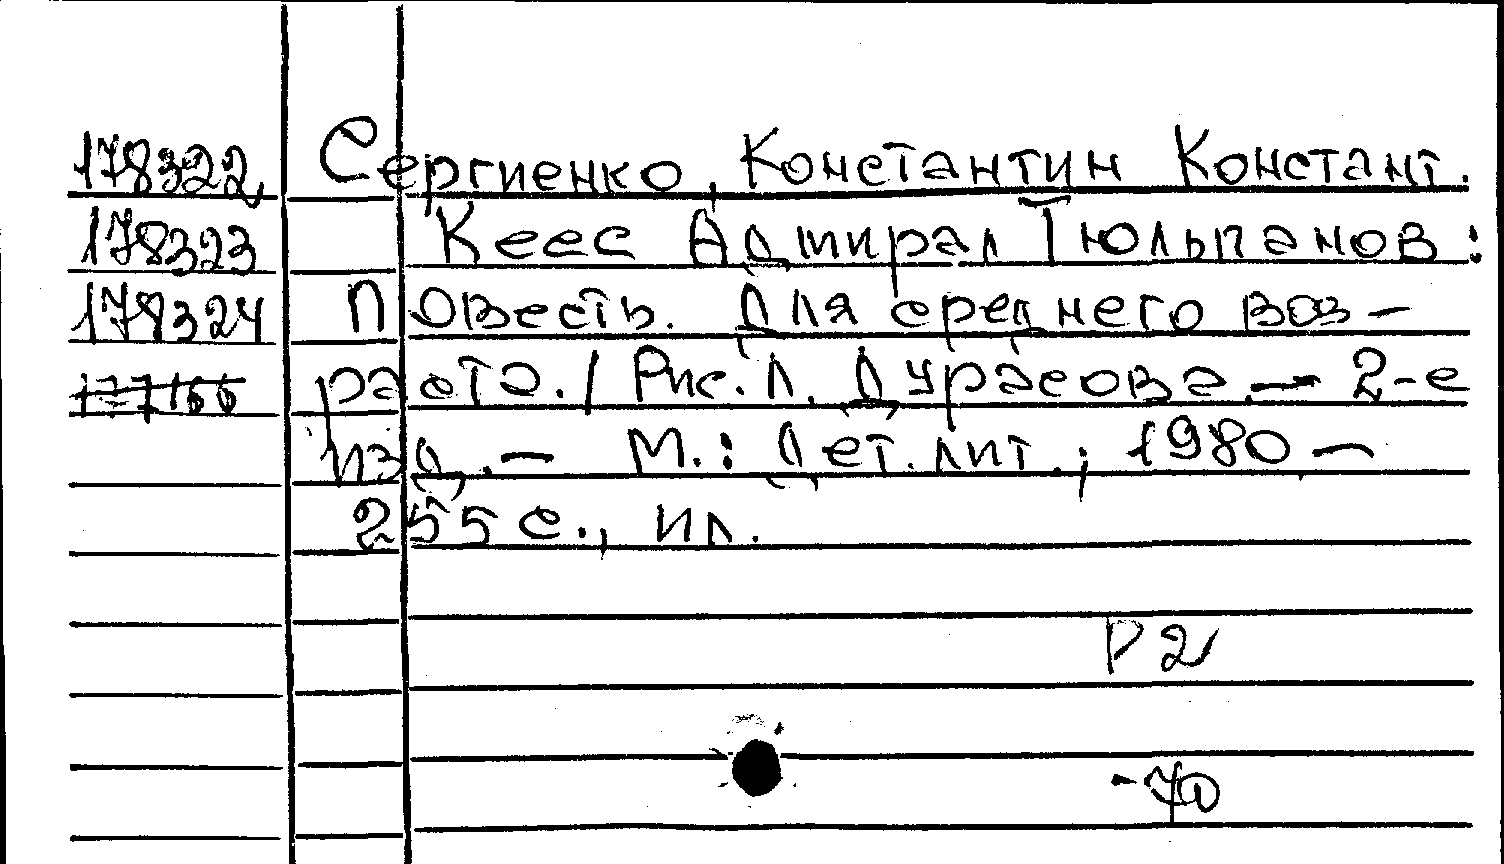 178322 Сергиенко, Константин Констант.
178323 Кеес Адмирал Тюльпанов:
178324 Повесть. Для среднего воз-
раста. / Рис. Л. Дурасова. — 2-е
изд. — М.: Дет. лит., 1980. —
255 с., ил.
Р2